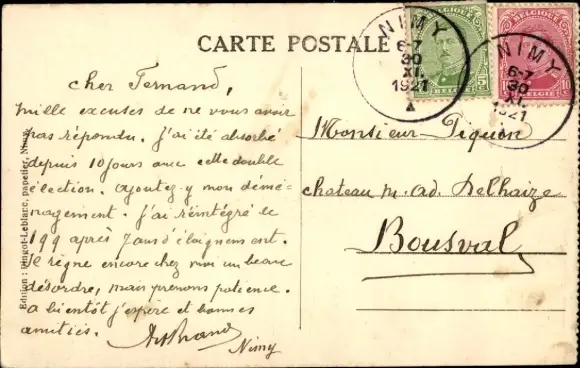 CARTE POSTALE
BELGIQUE
5c
BELGIE
BELGIQUE
10c
BELGIE
NIMY
6-7
30
XI.
1921
NIMY
6-7
30
XI.
1921
cher Fernand,
mille excuses de ne vous avoir
pas répondu. j'ai été absorbé
depuis 10 jours avec cette double
élection. ajoutez-y mon démé-
nagement. j'ai réintégré le
199 après 7 ans d'éloignement.
Il règne encore chez moi un beau
désordre, mais prenons patience.
a bientôt j'espère et bonnes
amitiés.
Nimy
Monsieur Piquon
chateau m. ad. Delhaize
Bousval
Edition : Hingot-Leblanc, papetier, Nimy